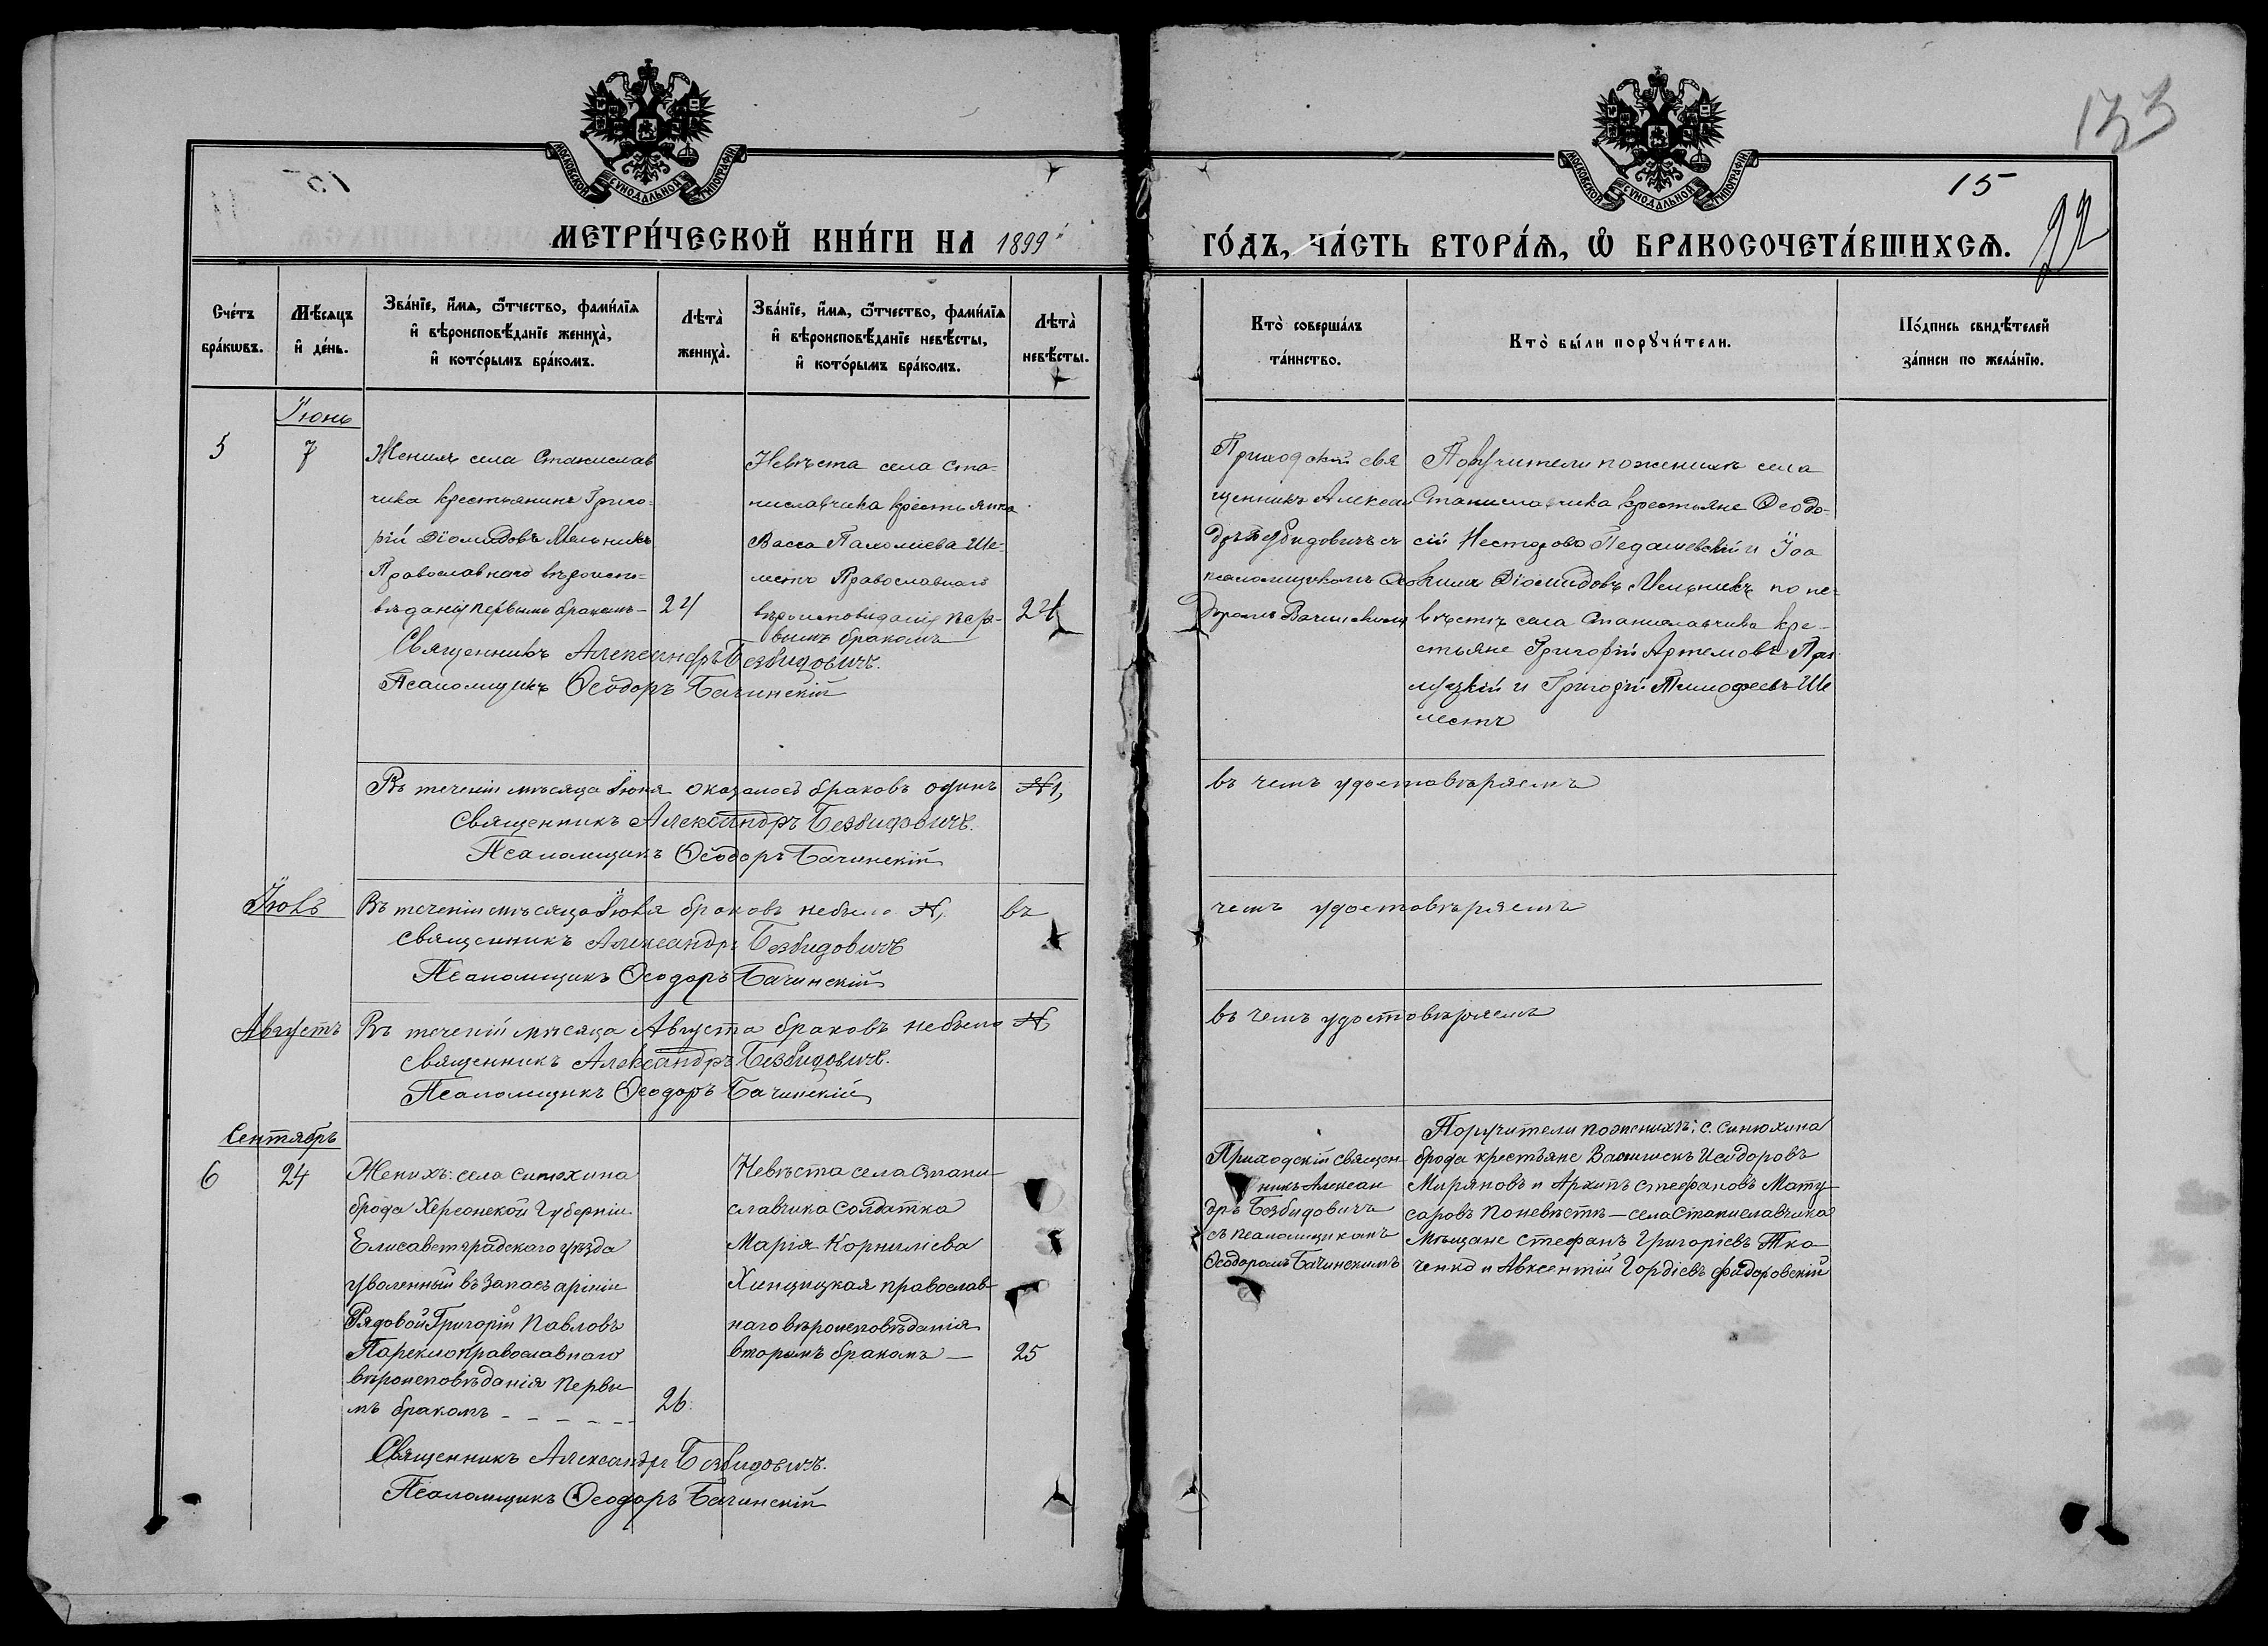 133
15
22
МОСКОВСКОЙ СѴНОДАЛЬНОЙ ТИПОГРАФІИ
МОСКОВСКОЙ СѴНОДАЛЬНОЙ ТИПОГРАФІИ
МЕТРИ́ЧЕСКОЙ КНИ́ГИ НА 1899
ГО́ДЪ, ЧА́СТЬ ВТОРА́Ѧ, Ѽ БРАКОСОЧЕТА́ВШИХСѦ.
Сче́тъ бра́кѡвъ.
Мѣ́сѧцъ и҆ де́нь.
Зва́нїе, и҆́мѧ, ѻ҆́тчество, фами́лїѧ
и҆ вѣроисповѣ́данїе жениха̀,
и҆ кото́рымъ бра́комъ.
Лѣта̀ жениха̀.
Зва́нїе, и҆́мѧ, ѻ҆́тчество, фами́лїѧ
и҆ вѣроисповѣ́данїе невѣ́сты,
и҆ кото́рымъ бра́комъ.
Лѣта̀ невѣ́сты.
Кто̀ соверша́лъ та́инство.
Кто̀ бы́ли порꙋчи́тели.
По́дпись свидѣ́телей
за́писи по жела́нїю.
Іюнь
5
7
Женихъ села Станислав
чика крестьянинъ Григо-
рій Діомидовъ Мельникъ
Православнаго вѣроиспо-
вѣданія первымъ бракомъ-
24
Невѣста села Ста-
ниславчика крестьянка
Васса Пахоміева Ше-
лестъ Православнаго
вѣроисповѣданія пер-
вымъ бракомъ
Приходскій свя
щенникъ Алексан
дръ Безбидовичъ съ
псаломщикомъ Ѳео
доромъ Бачинскимъ
Поручители по женихѣ села
Станиславчика крестьяне Ѳеодо-
сій Несторовъ Педашевскій и Іоа
кимъ Діомидовъ Мельникъ по не-
вѣстѣ села Станиславчика кре-
стьяне Григорій Артемовъ
и Григорій Тимофеевъ Ше
лестъ
Священникъ Александръ Безбидовичъ.
Псаломщикъ Ѳеодоръ Бачинскій
Въ теченіи мѣсяца Іюня оказалось браковъ одинъ № 1,
въ чемъ удостовѣряемъ
Священникъ Александръ Безбидовичъ.
Псаломщикъ Ѳеодоръ Бачинскій
Іюль
Въ теченіи мѣсяца Іюля браковъ небыло №, въ
чемъ удостовѣряемъ
Священникъ Александръ Безбидовичъ
Псаломщикъ Ѳеодоръ Бачинскій
Августъ
Въ теченіи мѣсяца Августа браковъ небыло №,
въ чемъ удостовѣряемъ
Священникъ Александръ Безбидовичъ.
Псаломщикъ Ѳеодоръ Бачинскій
Сентябрь
6
24
Женихъ: села Синюхина
брода Херсонской Губерніи
Елисаветградскаго уѣзда
уволенный въ запасъ арміи
Рядовой Григорій Павловъ
Парекло православнаго
вѣроисповѣданія первы
мъ бракомъ
26.
Невѣста села Стани-
славчика солдатка
Марія Корниліева
Хинцицкая православ-
наго вѣроисповѣданія
вторымъ бракомъ —
25
Приходскій священ-
никъ Алексан
дръ Безбидовичъ
съ псаломщикомъ
Ѳеодоромъ Бачинскимъ
Поручители по женихѣ: с. Синюхина
брода крестьяне Исидоровъ
Миряновъ и Архипъ Стефановъ Мату-
саровъ по невѣстѣ — села Станиславчика
Мѣщане Стефанъ Григоріевъ Тка-
ченко и Авксентій Гордіевъ Федоровскій
Священникъ Александръ Безбидовичъ.
Псаломщикъ Ѳеодоръ Бачинскій